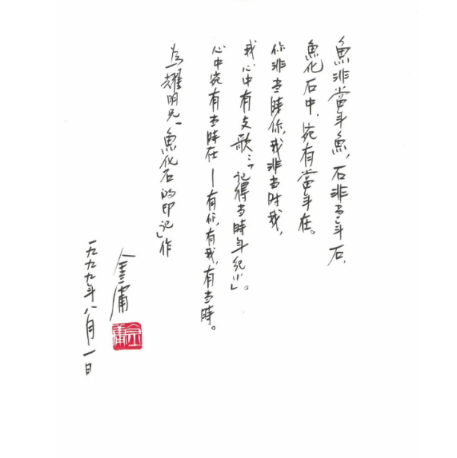 魚非當年魚，石非當年石，
魚化石中，宛有當年在。
你非当時你，我非当时我，
我心中有支歌：「記得当時年紀小」。
心中宛有当時在—有你，有我，有当時。
為耀明兄「魚化石的印記」作
金庸
金庸
一九九九年八月一日